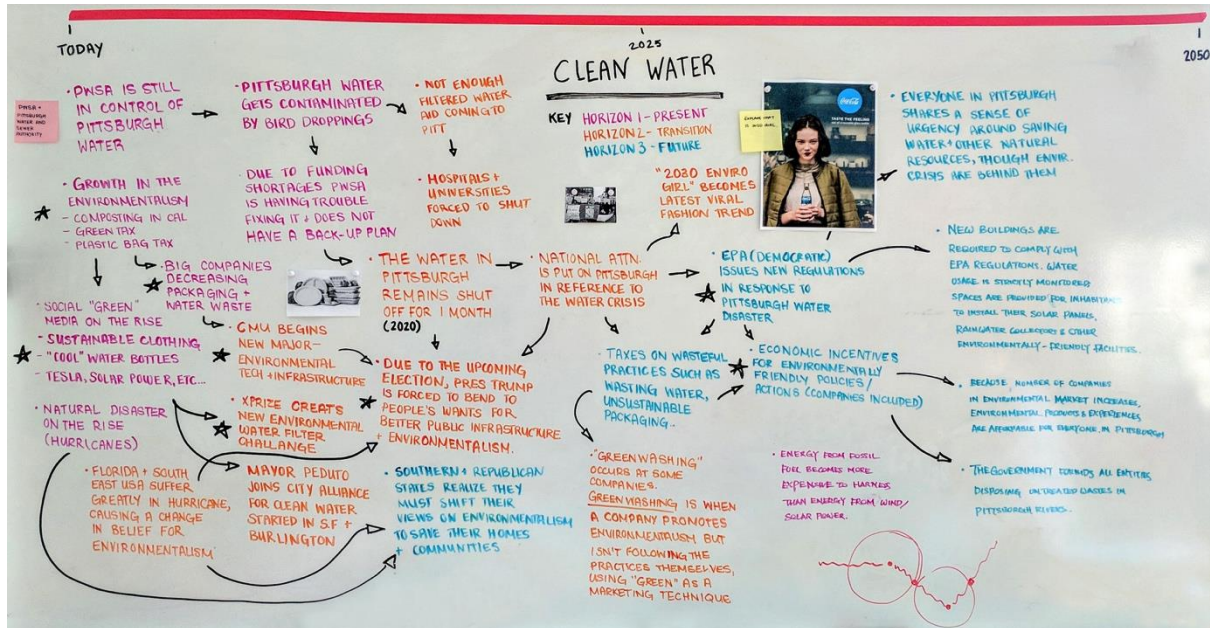 TODAY
2025
2050
CLEAN WATER
KEY
HORIZON 1 - PRESENT
HORIZON 2 - TRANSITION
HORIZON 3 - FUTURE
PWSA =
PITTSBURGH
WATER AND
SEWER
AUTHORITY
• PWSA IS STILL
IN CONTROL OF
PITTSBURGH
WATER
• PITTSBURGH WATER
GETS CONTAMINATED
BY BIRD DROPPINGS
• NOT ENOUGH
FILTERED WATER
AID COMING TO
PITT
• HOSPITALS +
UNIVERSITIES
FORCED TO SHUT
DOWN
• DUE TO FUNDING
SHORTAGES PWSA
IS HAVING TROUBLE
FIXING IT + DOES NOT
HAVE A BACK-UP PLAN
• GROWTH IN THE
ENVIRONMENTALISM
- COMPOSTING IN CAL
- GREEN TAX
- PLASTIC BAG TAX
• BIG COMPANIES
DECREASING
PACKAGING +
WATER WASTE
• SOCIAL "GREEN"
MEDIA ON THE RISE
- SUSTAINABLE CLOTHING
- "COOL" WATER BOTTLES
- TESLA, SOLAR POWER, ETC...
• NATURAL DISASTER
ON THE RISE
(HURRICANES)
• FLORIDA + SOUTH
EAST USA SUFFER
GREATLY IN HURRICANE,
CAUSING A CHANGE
IN BELIEF FOR
ENVIRONMENTALISM
• CMU BEGINS
NEW MAJOR-
ENVIRONMENTAL
TECH + INFRASTRUCTURE
• XPRIZE CREATS
NEW ENVIRONMENTAL
WATER FILTER
CHALLANGE
• MAYOR PEDUTO
JOINS CITY ALLIANCE
FOR CLEAN WATER
STARTED IN S.F +
BURLINGTON
• THE WATER IN
PITTSBURGH
REMAINS SHUT
OFF FOR 1 MONTH
(2020)
• DUE TO THE UPCOMING
ELECTION, PRES TRUMP
IS FORCED TO BEND TO
PEOPLE'S WANTS FOR
BETTER PUBLIC INFRASTRUCTURE
+ ENVIRONMENTALISM.
• SOUTHERN + REPUBLICAN
STATES REALIZE THEY
MUST SHIFT THEIR
VIEWS ON ENVIRONMENTALISM
TO SAVE THEIR HOMES
+ COMMUNITIES
• NATIONAL ATTN.
IS PUT ON PITTSBURGH
IN REFERENCE TO
THE WATER CRISIS
• "2030 ENVIRO
GIRL" BECOMES
LATEST VIRAL
FASHION TREND
TASTE THE FEELING
• EPA (DEMOCRATIC)
ISSUES NEW REGULATIONS
IN RESPONSE TO
PITTSBURGH WATER
DISASTER
• TAXES ON WASTEFUL
PRACTICES SUCH AS
WASTING WATER,
UNSUSTAINABLE
PACKAGING..
• ECONOMIC INCENTIVES
FOR ENVIRONMENTALLY
FRIENDLY POLICIES/
ACTIONS (COMPANIES INCLUDED)
• "GREENWASHING"
OCCURS AT SOME
COMPANIES.
GREENWASHING IS WHEN
A COMPANY PROMOTES
ENVIRONMENTALISM BUT
ISN'T FOLLOWING THE
PRACTICES THEMSELVES,
USING "GREEN" AS A
MARKETING TECHNIQUE
• ENERGY FROM FOSSIL
FUEL BECOMES MORE
EXPENSIVE TO HARNESS
THAN ENERGY FROM WIND/
SOLAR POWER.
• EVERYONE IN PITTSBURGH
SHARES A SENSE OF
URGENCY AROUND SAVING
WATER + OTHER NATURAL
RESOURCES, THOUGH ENVIR.
CRISIS ARE BEHIND THEM
• NEW BUILDINGS ARE
REQUIRED TO COMPLY WITH
EPA REGULATIONS. WATER
USAGE IS STRICTLY MONITORED
SPACES ARE PROVIDED FOR INHABITANTS
TO INSTALL THEIR SOLAR PANELS,
RAINWATER COLLECTORS & OTHER
ENVIRONMENTALLY-FRIENDLY FACILITIES.
• BECAUSE NUMBER OF COMPANIES
IN ENVIRONMENTAL MARKET INCREASES,
ENVIRONMENTAL PRODUCTS & EXPERIENCES,
ARE AFFORDABLE FOR EVERYONE, IN PITTSBURGH
• THE GOVERNMENT FORBIDS ALL ENTITIES
DISPOSING UNTREATED WASTES IN
PITTSBURGH RIVERS.